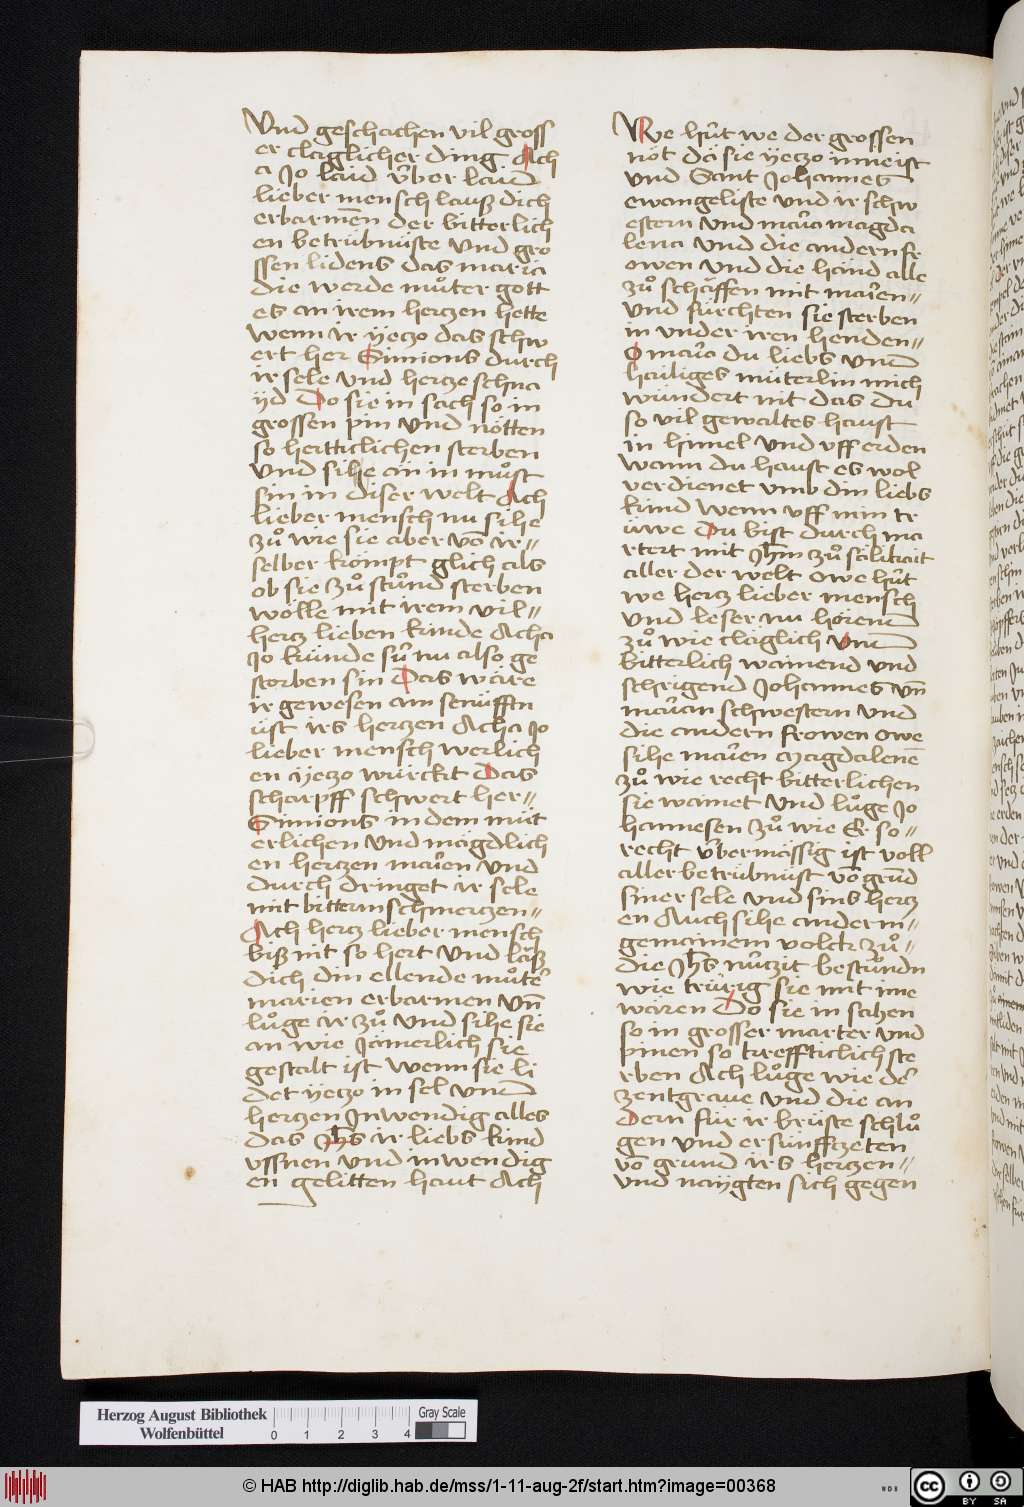 Vnd geschachen vil gross
er cläglicher ding Ach
a Jo laid v̈ber laid
lieber mensch lauß dich
erbarmēn der bitterlich
en betrübnüste Vnd gro
ssen lidens das maria
die werde mu̍ter gott
es an irem herczen hette
wenn ir yeczo das schw
ert her Simions durch
ir sele vnd hercze schna
yd Do sie in sach so in
grossen pin vnd nötten
so hertticlichen sterben
Vnd sihe an in mu̍st
sin in diser welt Ach
lieber mensch nu sihe
zů wie sie aber vō ir=
selber kömpt glich als
ob sie zů stund sterben
wölle mit irem vil=
hercz lieben kinde Acha
Jo künde sür nu also ge
storben sin Das wäre
ir gewesen ain senüfftn
üst irs herczen Acha Jo
lieber mensch werlich
en yeczo würckt Das
scharpff schwert her=
Simions in dem müt
erlichen vnd mägdlich
en herczen marien vnd
durch dringet ir sele
mit bitterm schmerczen=
Ach hercz lieber mensch
biß nit so hert vnd läß
dich din ellende můter
marien erbarmen vn̄
lůge ir zů vnd sihe sie
an wie Jämerlich sie
gestalt ist wenn sie li
det yeczo in sel vnd
herczen Inwendig alles
das Jhs ir liebs kind
vssnen vnd inwendig
en gelitten haut Ach
We hüt we der grossen
nöt dä sie yeczo inne ist
vnd Sant Johannes
ewangeliste vnd ir schw
estern vnd maria magda
lena vnd die andern fr
owen vnd die händ alle
zů schaffen mit marien=
vnd fürchten sie sterben
in vnder iren henden=
O maria du liebs vnd
hailiges müterlin mich
wundert nit das du
so vil gewaltes haust
in himel vnd vff erden
wann du haust es wol
verdienet vmb din liebs
kind wenn vff min tr
üwe Du bist durch ma
rtert mit Jhm zů sälikait
aller der welt owe hüt
we hercz lieber mensch
vnd leser nu hörend
zů wie cläglich vnd
bitterlich wainend vnd
schrigend Johannes vn̄
marian schwestern vnd
die andern frowen owe
sihe marien Magdalenē
zů wie recht bitterlichen
sie wainet vnd lůge Jo
hannesen zů wie Er so=
recht v̈bermässig ist voll
aller betrübnust vō grūd
siner sele vnd sins hercz
en Auch sihe anderm=
gemainem volck zů=
die Jhs nŭczit bestŭndn
wie trürig sie mit ime
wären Do sie in sahen
so in grosser marter vnd
pinen so treffticlich ste
rben Ach lůge wie dē
zentgraue vnd die an
dern für ir brüste schlů
gen vnd ersünffczeten
vō grund irs herczen=
vnd naygten sich gegen
Herzog August Bibliothek
Wolfenbüttel
0 1 2 3 4
Gray Scale
© HAB http://diglib.hab.de/mss/1-11-aug-2f/start.htm?image=00368
WDB
CC BY SA